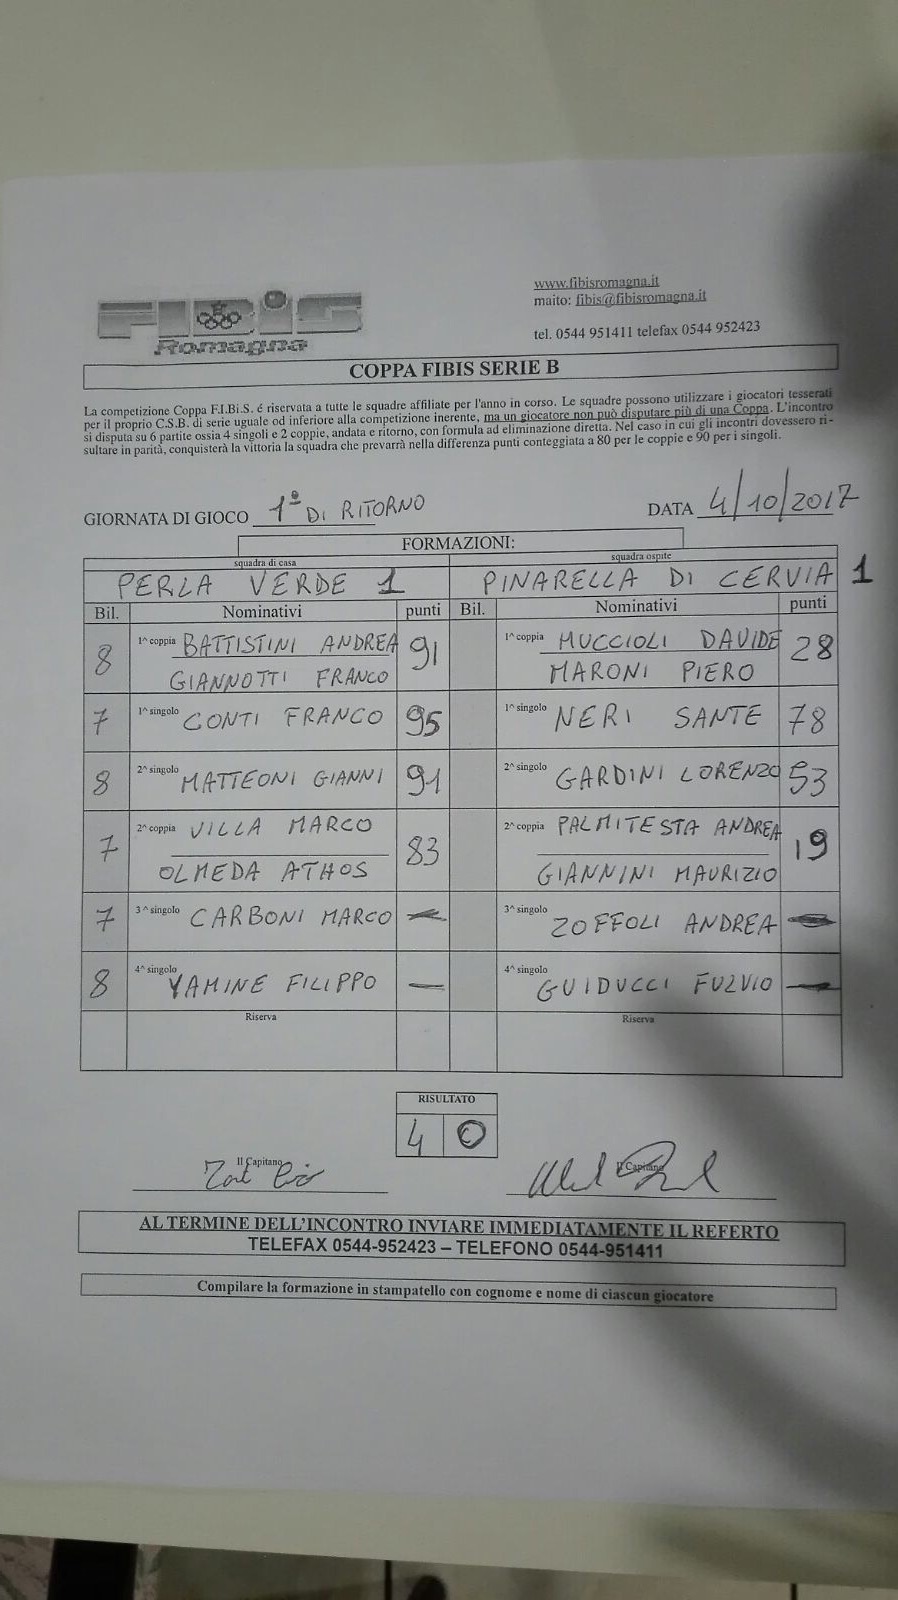 FIBiS
Romagna
www.fibisromagna.it
maito: fibis@fibisromagna.it
tel. 0544 951411 telefax 0544 952423
COPPA FIBIS SERIE B
La competizione Coppa F.I.Bi.S. é riservata a tutte le squadre affiliate per l'anno in corso. Le squadre possono utilizzare i giocatori tesserati
per il proprio C.S.B. di serie uguale od inferiore alla competizione inerente, ma un giocatore non può disputare più di una Coppa. L'incontro
si disputa su 6 partite ossia 4 singoli e 2 coppie, andata e ritorno, con formula ad eliminazione diretta. Nel caso in cui gli incontri dovessero ri-
sultare in parità, conquisterà la vittoria la squadra che prevarrà nella differenza punti conteggiata a 80 per le coppie e 90 per i singoli.
GIORNATA DI GIOCO 1° DI RITORNO DATA 4/10/2017
FORMAZIONI:
squadra di casa squadra ospite
PERLA VERDE 1 PINARELLA DI CERVIA 1
Bil. Nominativi punti Bil. Nominativi punti
8 1^ coppia BATTISTINI ANDREA 91 1^ coppia MUCCIOLI DAVIDE 28
GIANNOTTI FRANCO MARONI PIERO
7 1^ singolo CONTI FRANCO 95 1^ singolo NERI SANTE 78
8 2^ singolo MATTEONI GIANNI 91 2^ singolo GARDINI LORENZO 53
7 2^ coppia VILLA MARCO 83 2^ coppia PALMITESTA ANDREA 19
OLMEDA ATHOS GIANNINI MAURIZIO
7 3^ singolo CARBONI MARCO — 3^ singolo ZOFFOLI ANDREA —
8 4^ singolo YAMINE FILIPPO — 4^ singolo GUIDUCCI FULVIO —
Riserva Riserva
RISULTATO
4 0
Il Capitano Il Capitano
AL TERMINE DELL'INCONTRO INVIARE IMMEDIATAMENTE IL REFERTO
TELEFAX 0544-952423 – TELEFONO 0544-951411
Compilare la formazione in stampatello con cognome e nome di ciascun giocatore